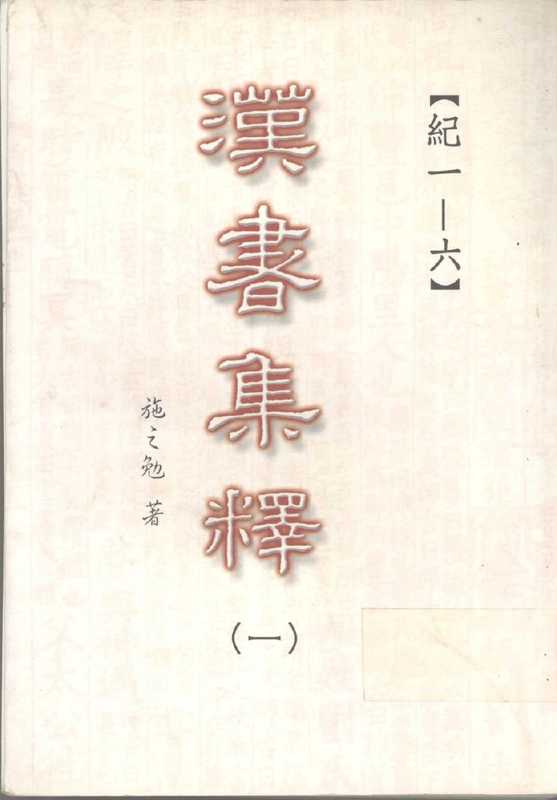 【紀一—六】
漢書集釋
(一)
施之勉 著